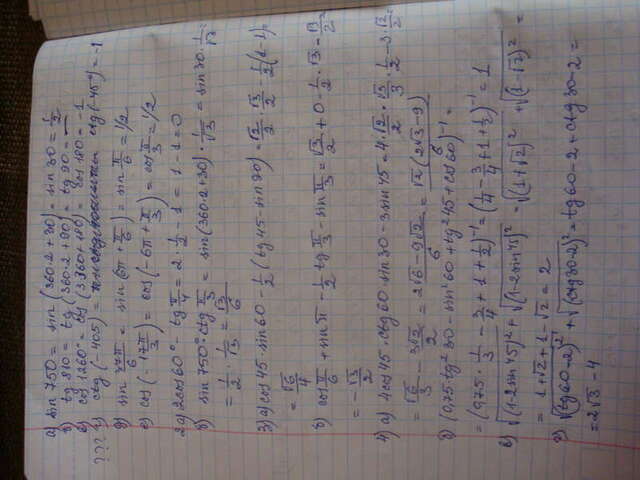 а) sin 750 = sin (360·2+30) = sin 30 = 1/2
б) tg 810 = tg (360·2+90) = tg 90 = —
в) cos 1260 = cos (3·360+180) = cos 180 = -1
??? г) ctg (-405) = ctg (-45°) = -1
д) sin 37π/6 = sin (6π + π/6) = sin π/6 = 1/2
е) cos (-17π/3) = cos (-6π + π/3) = cos π/3 = 1/2
2 а) 2cos 60° - tg π/4 = 2·1/2 - 1 = 1-1 = 0
б) sin 750°·ctg π/3 = sin (360·2+30)·1/√3 = sin 30·1/√3 =
= 1/2 · 1/√3 = √3/6
3) а) cos 45·sin 60 - 1/2 (tg 45 - sin 90) = √2/2 · √3/2 - 1/2 (1-1)
= √6/4
б) cos π/6 + sin π - 1/2 tg π/3 - sin π/3 = √3/2 + 0 - 1/2·√3 - √3/2
= -√3/2
4) а) 4cos 45·ctg 60·sin 30 - 3sin 45 = 4·√2/2·√3/3·1/2 - 3·√2/2 =
= √6/3 - 3√2/2 = 2√6 - 9√2 / 6 = √2(2√3-9) / 6
б) (0,75 tg² 30 - sin² 60 + tg² 45 + cos 60)⁻¹ =
= (0,75·1/3 - 3/4 + 1 + 1/2)⁻¹ = (1/4 - 3/4 + 1 + 1/2)⁻¹ = 1
в) √(1-2sin 45)² + √(1-2sin 45)² = √(1+√2)² + √(1-√2)² =
= 1+√2+1-√2 = 2
г) √(tg 60-2)² + √(ctg 30-2)² = tg 60-2 + ctg 30-2 =
= 2√3-4